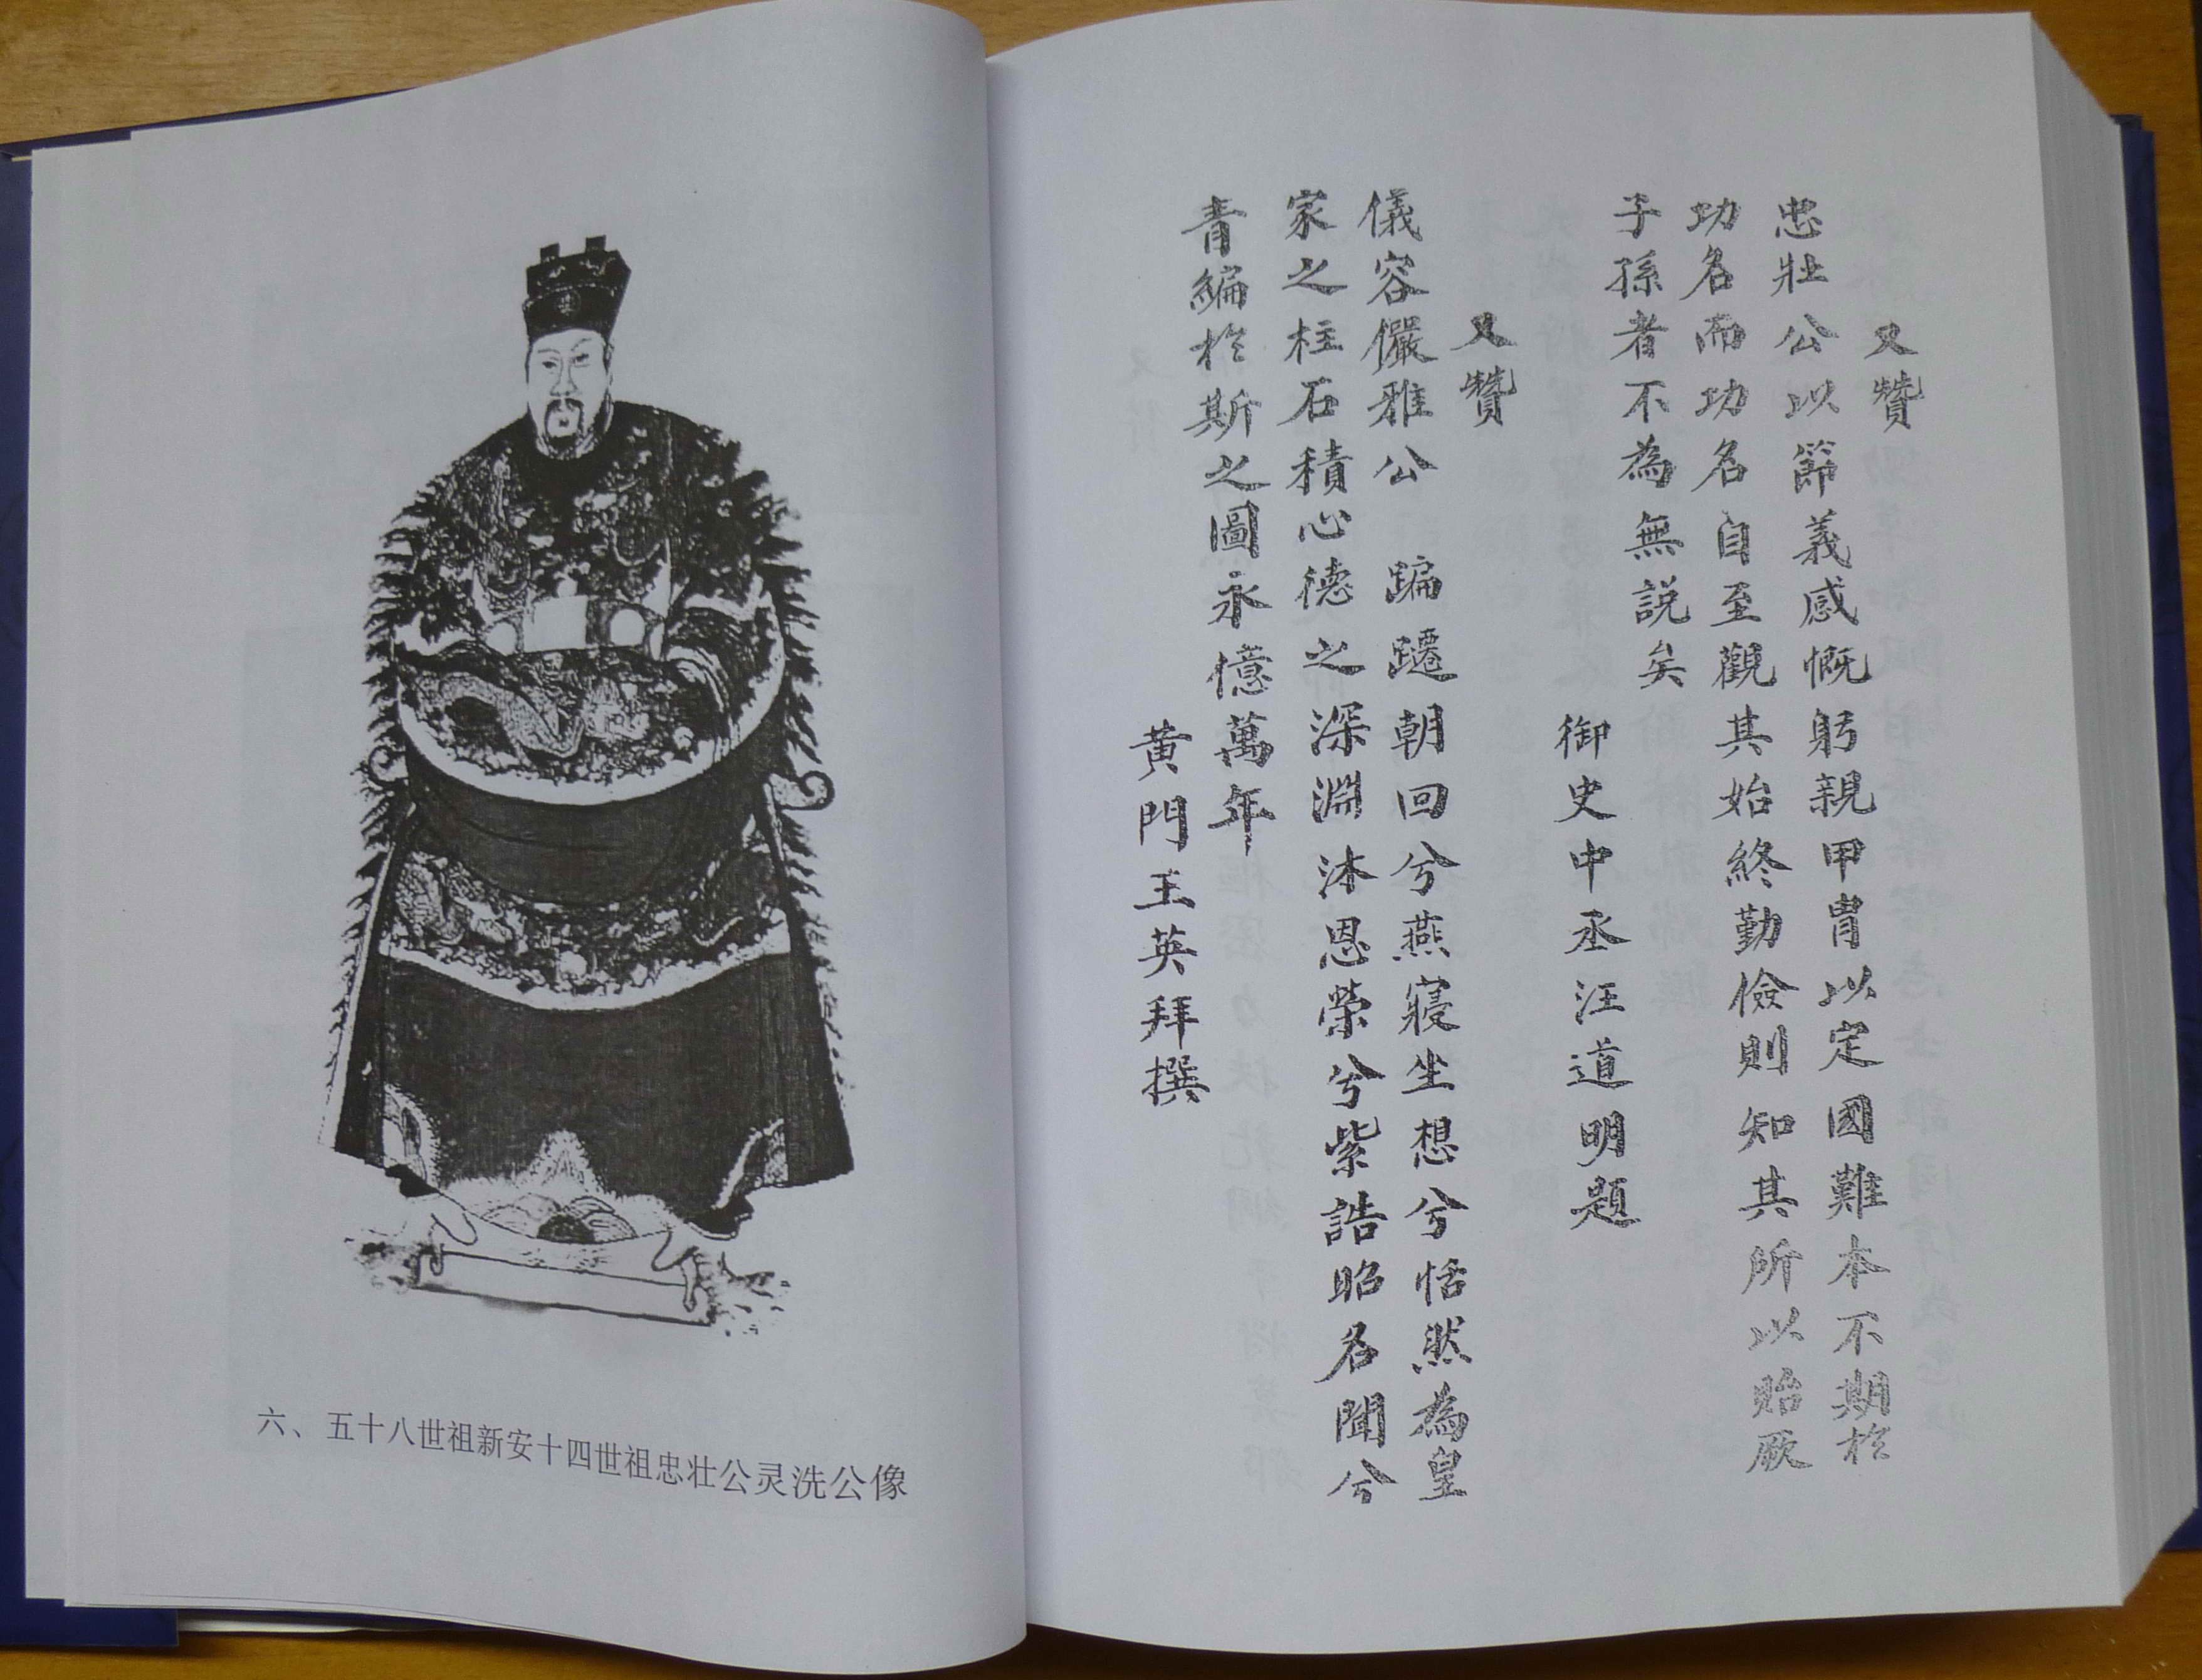 又贊
忠壯公以節義感慨躬親甲冑以定國難本不期於
功名而功名自至觀其始終勤儉則知其所以貽厥
子孫者不為無說矣
御史中丞汪道明題
又贊
儀容儼雅公 蹁躚朝回兮燕寢坐想兮恬然為皇
家之柱石積心德之深淵沐恩榮兮紫誥昭名聞兮
青編於斯之圖永億萬年
黃門王英拜撰
六、五十八世祖新安十四世祖忠壮公灵洗公像